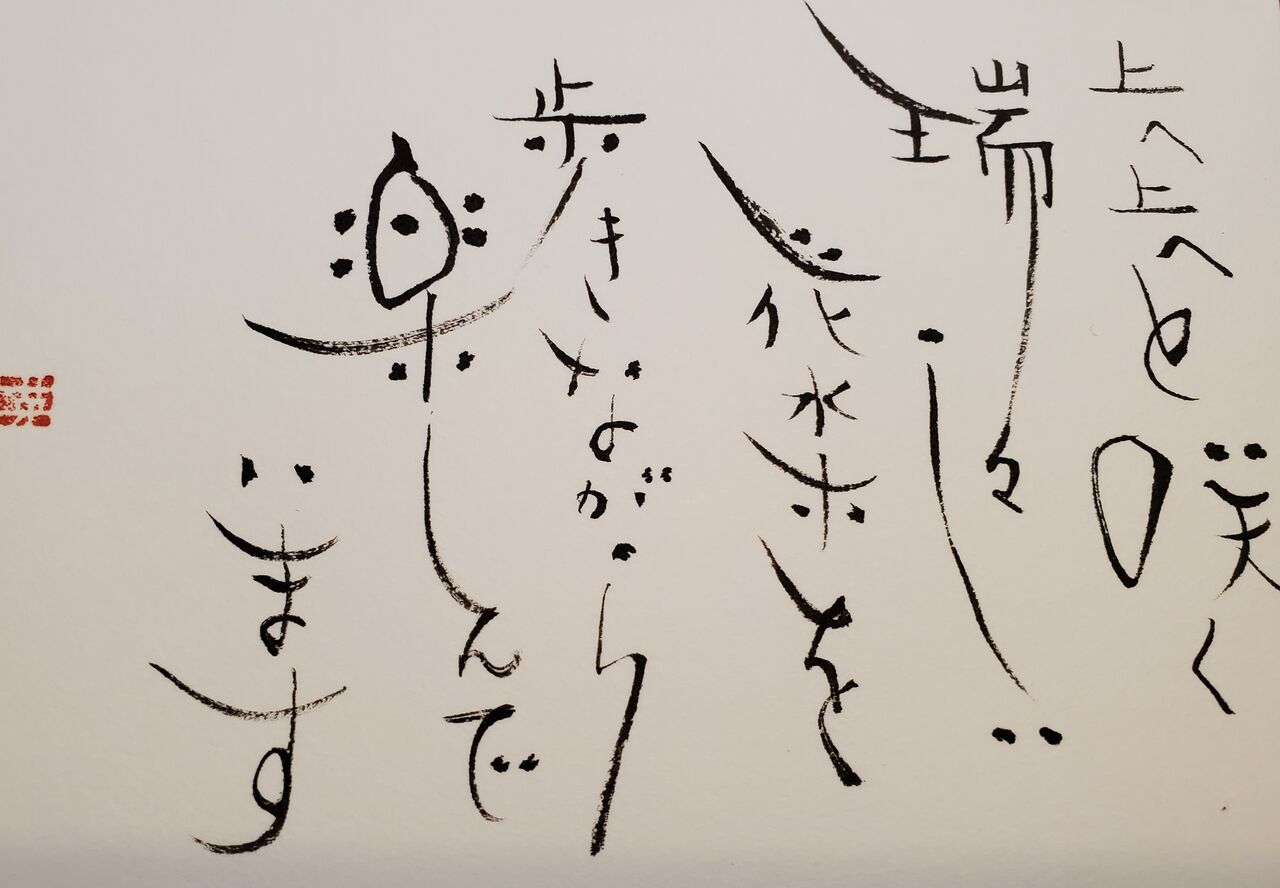 上へ上へと咲く
瑞々しい
花水木を
歩きながら
楽しんで
います